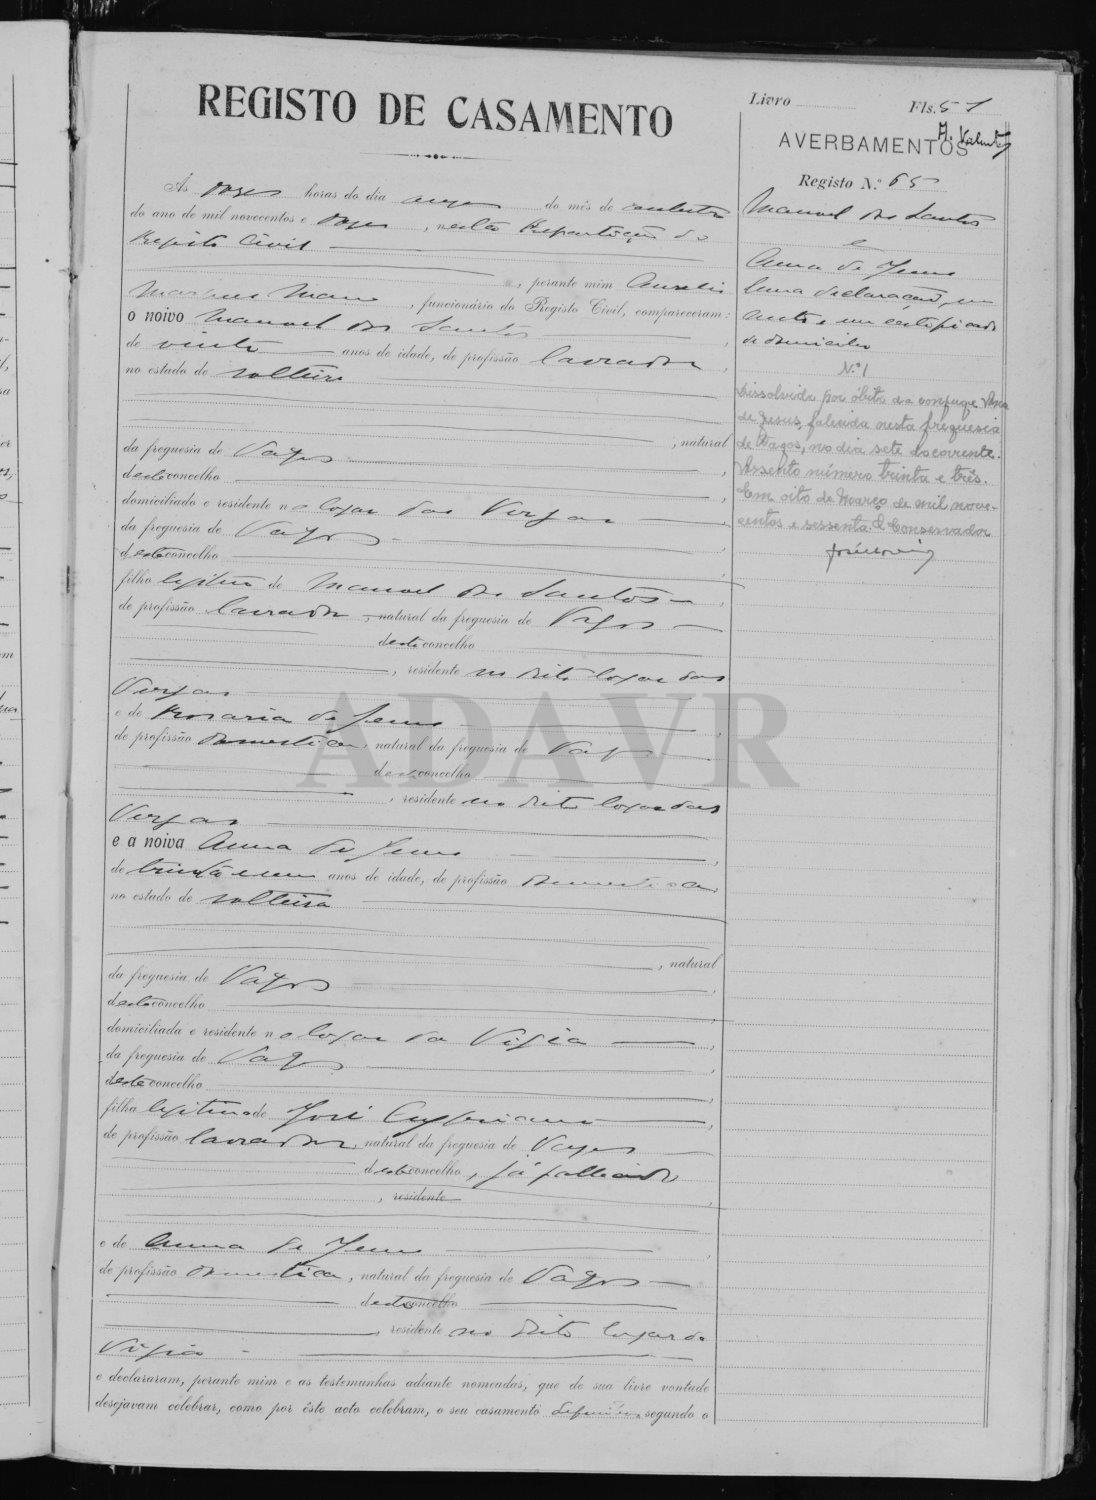 REGISTO DE CASAMENTO
Livro
Fls. 51
AVERBAMENTOS
Registo N.º 65
Manuel dos Santos
e
Anna de Jesus
Uma declaração, um
auto e um certificado
de domicilio
N.º 1
Dissolvido por óbito da conjuge Ana
de Jesus, falecida nesta freguesia
de Vagos, no dia sete do corrente.
Assento número trinta e três.
Em oito de Março de mil nove-
centos e sessenta. O Conservador
Ás onze horas do dia do mês de outubro
do ano de mil novecentos e onze, nesta Repartição do
Registo Civil
, perante mim Aurelio
Marques Mano, funcionário do Registo Civil, compareceram:
o noivo Manuel dos Santos
de vinte anos de idade, de profissão lavrador,
no estado de solteiro
, natural
da freguesia de Vagos
deste concelho
domiciliado e residente no logar das Vergas
da freguesia de Vagos
deste concelho
filho legitimo de Manuel dos Santos
de profissão lavrador, natural da freguesia de Vagos
deste concelho
, residente no dito logar das
Vergas
e de Rosaria de Jesus
de profissão domestica, natural da freguesia de Vagos
deste concelho
, residente no dito logar das
Vergas
e a noiva Anna de Jesus
de trinta e um anos de idade, de profissão domestica
no estado de solteira
, natural
da freguesia de Vagos
deste concelho
domiciliada e residente no logar da Vigia
da freguesia de Vagos
deste concelho
filha legitima de José
de profissão lavrador, natural da freguesia de Vagos
deste concelho, já fallecido
, residente
e de Anna de Jesus
de profissão domestica, natural da freguesia de Vagos
deste concelho
, residente no dito logar da
Vigia
e declararam, perante mim e as testemunhas adiante nomeadas, que de sua livre vontade
desejavam celebrar, como por êste acto celebram, o seu casamento definitivo, segundo o
ADAVR